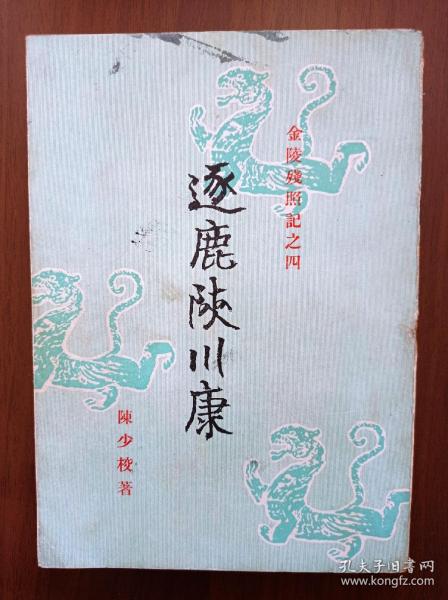 金陵殘照記之四
逐鹿陝川康
陳少校著
孔夫子旧书网
www.kongfz.com